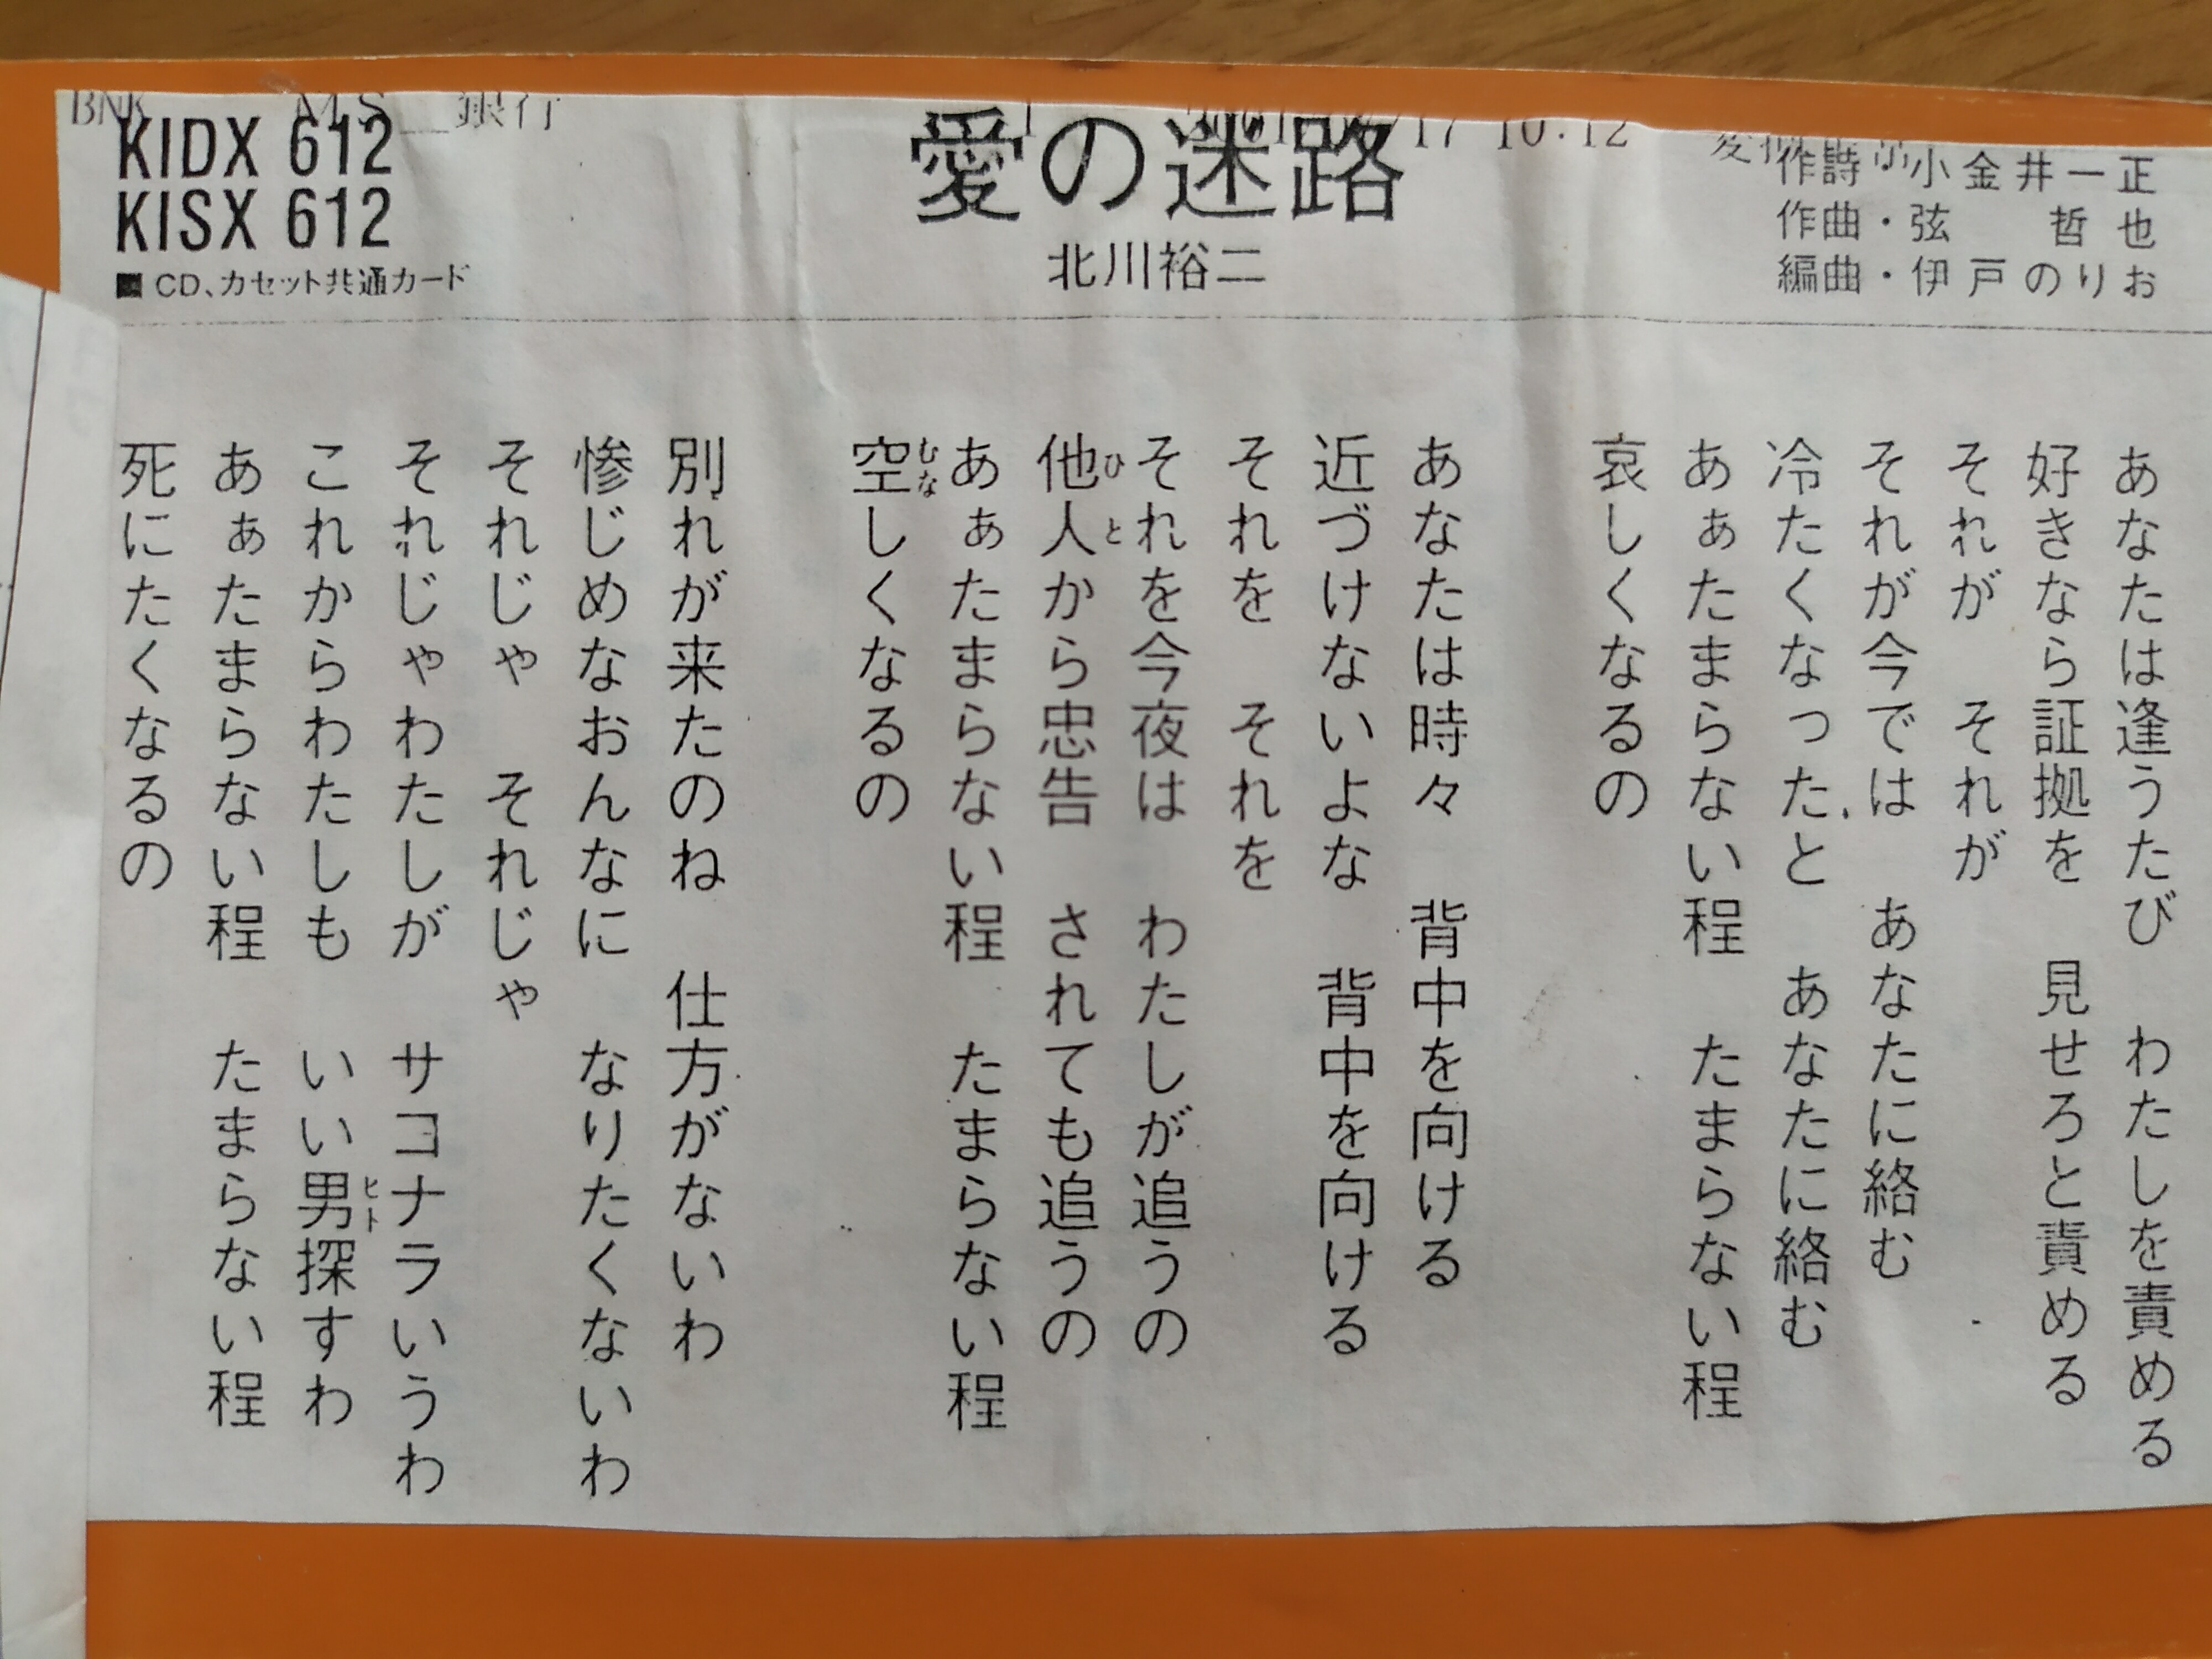 KIDX 612
KISX 612
■ CD、カセット共通カード
愛の迷路
北川裕二
作詩・小金井一正
作曲・弦 哲也
編曲・伊戸のりお
あなたは逢うたび わたしを責める
好きなら証拠を 見せろと責める
それが それが
それが今では あなたに絡む
冷たくなったと あなたに絡む
あぁたまらない程 たまらない程
哀しくなるの
あなたは時々 背中を向ける
近づけないよな 背中を向ける
それを それを
それを今夜は わたしが追うの
他人から忠告 されても追うの
ひと
あぁたまらない程 たまらない程
空しくなるの
むな
別れが来たのね 仕方がないわ
惨じめなおんなに なりたくないわ
それじゃ それじゃ
それじゃわたしが サヨナラいうわ
これからわたしも いい男探すわ
ヒト
あぁたまらない程 たまらない程
死にたくなるの
銀行
17 10:12